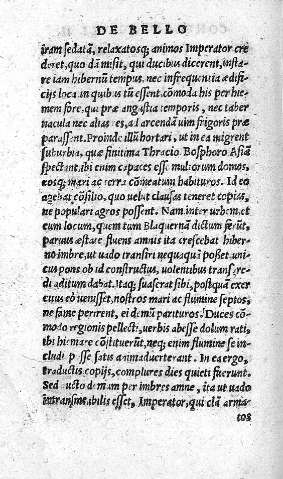 DE BELLO
iram sedatã, relaxatosq; animos Imperator cre
deret, quo dã misit, qui ducibus dicerent, insta-
re iam hibernũ tempus, nec infrequentia ædifi-
cijs loca, in quibus tũ essent, cõmoda his per hie-
mem fore, quæ præ angustia temporis, nec taber
nacula nec alias es, ad arcendam uim frigoris præ
parassent. Proinde illũ hortari, ut in ea migrent
suburbia, quæ finitima Thracio Bosphoro Asiã
spectant, ibi enim capaces esse multorum domos,
eosq; mari ac terra cõmeatum habituros. Id eo
agebat cõsilio, quo uelut clausas teneret copias,
ne populari agros possent. Nam inter urbem, et
eum locum, quem tum Blaquernã dictum ferũt,
paruus æstate fluens amnis ita crescebat hiber-
no imbre, ut uado transiri nequaquã posset, uni
cus pons ob id constructus, uolentibus transire
di aditum dabat. Itaq; suaserat sibi, postquã exer
citus eò uenisset, nostros mari ac flumine septos,
ne fame perirent, ei domũ parituros. Duces cõmo
do regionis pellecti, uerbis abesse dolum rati,
ibi hiemare cõstituerũt, neq; enim flumine se in-
cludi posse satis animaduerterant. In ea ergo,
traductis copijs, complures dies quieti fuerunt.
Sed aucto demum per imbres amne, ita ut uado
intransmeabilis esset, Imperator, qui clã arma-
tos